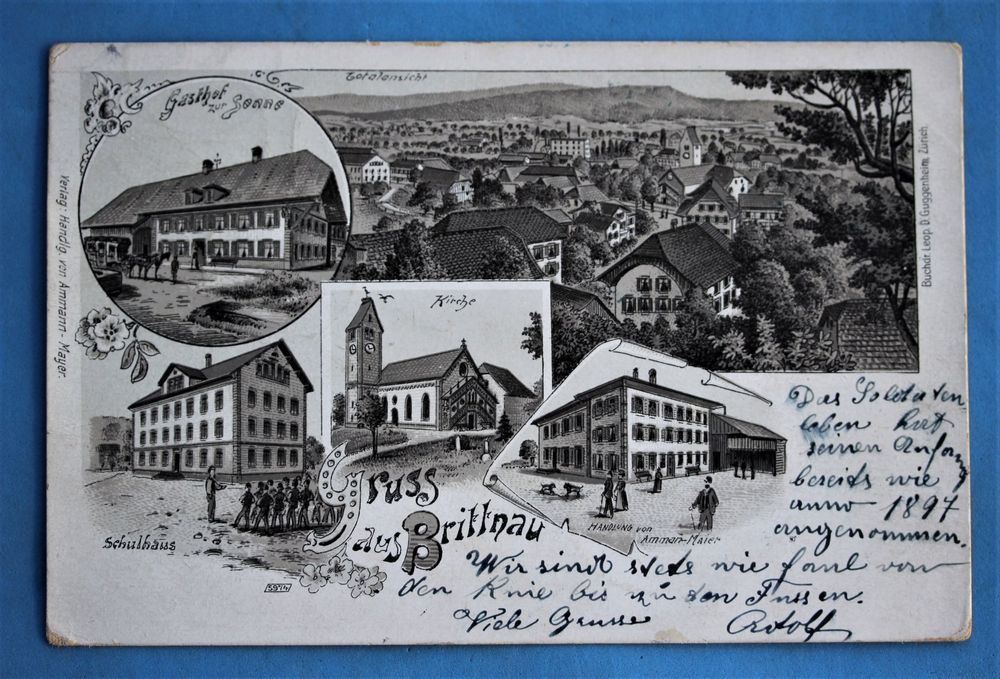 Totalansicht
Gasthof
zur Sonne
Verlag: Handlg. von Ammann-Mayer.
Buchdr. Leop. D. Guggenheim, Zürich
Kirche
Schulhaus
Gruss
aus Brittnau
HANDLUNG von
Amman-Maier
Das Soldaten
leben hat
seinen Anfang
bereits wie
anno 1897
angenommen.
Wir sind stets wie faul von
den Knie bis zu den Füssen.
Viele Grüsse Adolf